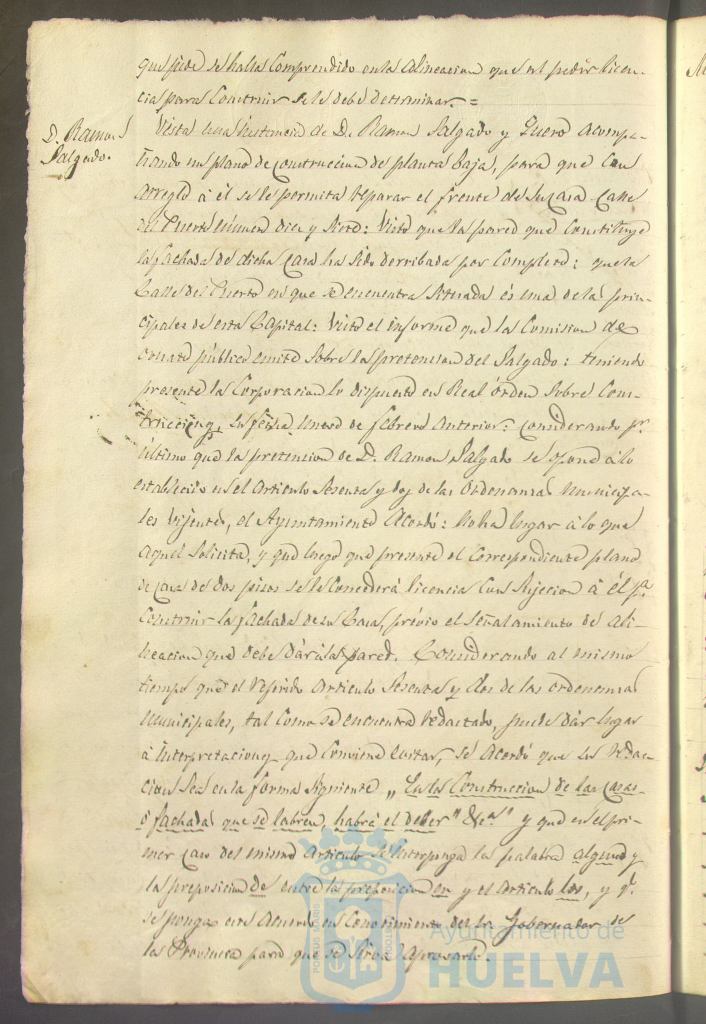 que pide se halla comprendido en la alineacion que al pedir licen-
cia para Construir se le debe determinar. =
D. Ramon
Salgado.
Vista una instancia de D. Ramon Salgado y Quero acompa-
ñando un plano de construccion de planta baja, para que con
arreglo á él se le permita reparar el frente de su casa Calle
del Puerto número diez y siete: Visto que la pared que Constituye
la fachada de dicha casa ha sido derribada por completo: que la
Calle del Puerto en que se encuentra situada és una de las prin-
cipales de esta Capital: Visto el informe que la Comision de
ornato público emite sobre la pretension del Salgado: teniendo
presente la Corporacion lo dispuesto en Real órden sobre Cons-
trucciones, su fecha de febrero anterior: considerando pr.
último que la pretension de D. Ramon Salgado se opone á lo
establecido en el artículo Sesenta y dos de las Ordenanzas Municipa-
les vijentes, el Ayuntamiento Acordó: No ha lugar á lo que
aquel solicita, y que luego que presente el correspondiente plano
de casa de dos pisos se le concederá licencia con sujecion á él pa.
Construir la fachada de su Casa, prévio el señalamiento de ali-
neacion que debe dár á la pared. Considerando al mismo
tiempo que el referido artículo Sesenta y dos de las Ordenanzas
Municipales, tal como se encuentra redactado, puede dár lugar
á interpretaciones que conviene evitar, sé Acordó que su redac-
cion sea en la forma siguiente „ En la Construccion de las casas
ó fachadas que se labren, habrá el deber" &ca. " y que en el pri-
mer caso del mismo Artículo se interponga la palabra alguno y
la preposicion de entre la preposicion en y el artículo los, y qe.
se ponga este Acuerdo en Conocimiento del Sr. Gobernador de
la Provincia para que se sirva aprobarlo.
Ayuntamiento de
HUELVA